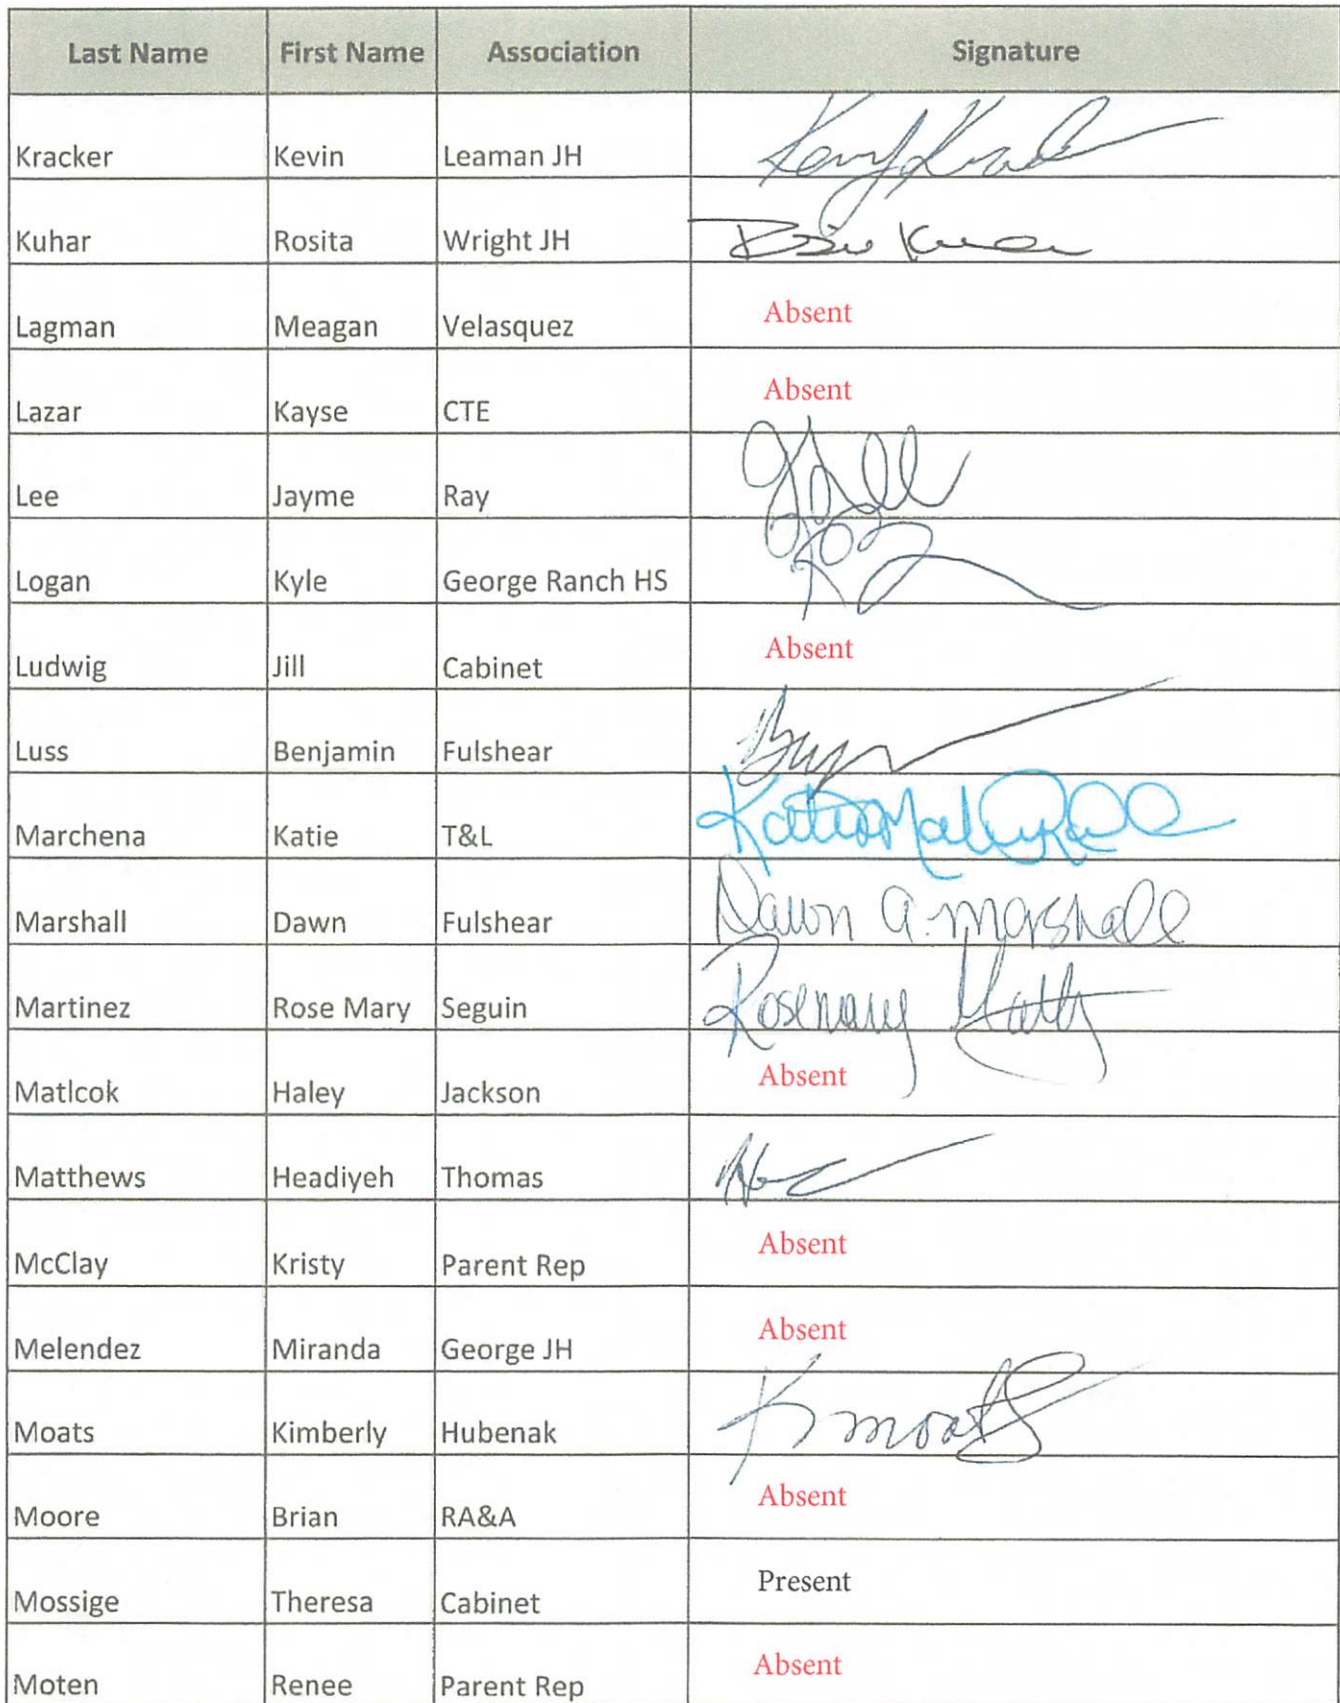 Last Name First Name Association Signature
Kracker Kevin Leaman JH
Kuhar Rosita Wright JH
Lagman Meagan Velasquez Absent
Lazar Kayse CTE Absent
Lee Jayme Ray
Logan Kyle George Ranch HS
Ludwig Jill Cabinet Absent
Luss Benjamin Fulshear
Marchena Katie T&L
Marshall Dawn Fulshear Dawn A. Marshall
Martinez Rose Mary Seguin Rosemary
Matlcok Haley Jackson Absent
Matthews Headiyeh Thomas
McClay Kristy Parent Rep Absent
Melendez Miranda George JH Absent
Moats Kimberly Hubenak K Moats
Moore Brian RA&A Absent
Mossige Theresa Cabinet Present
Moten Renee Parent Rep Absent